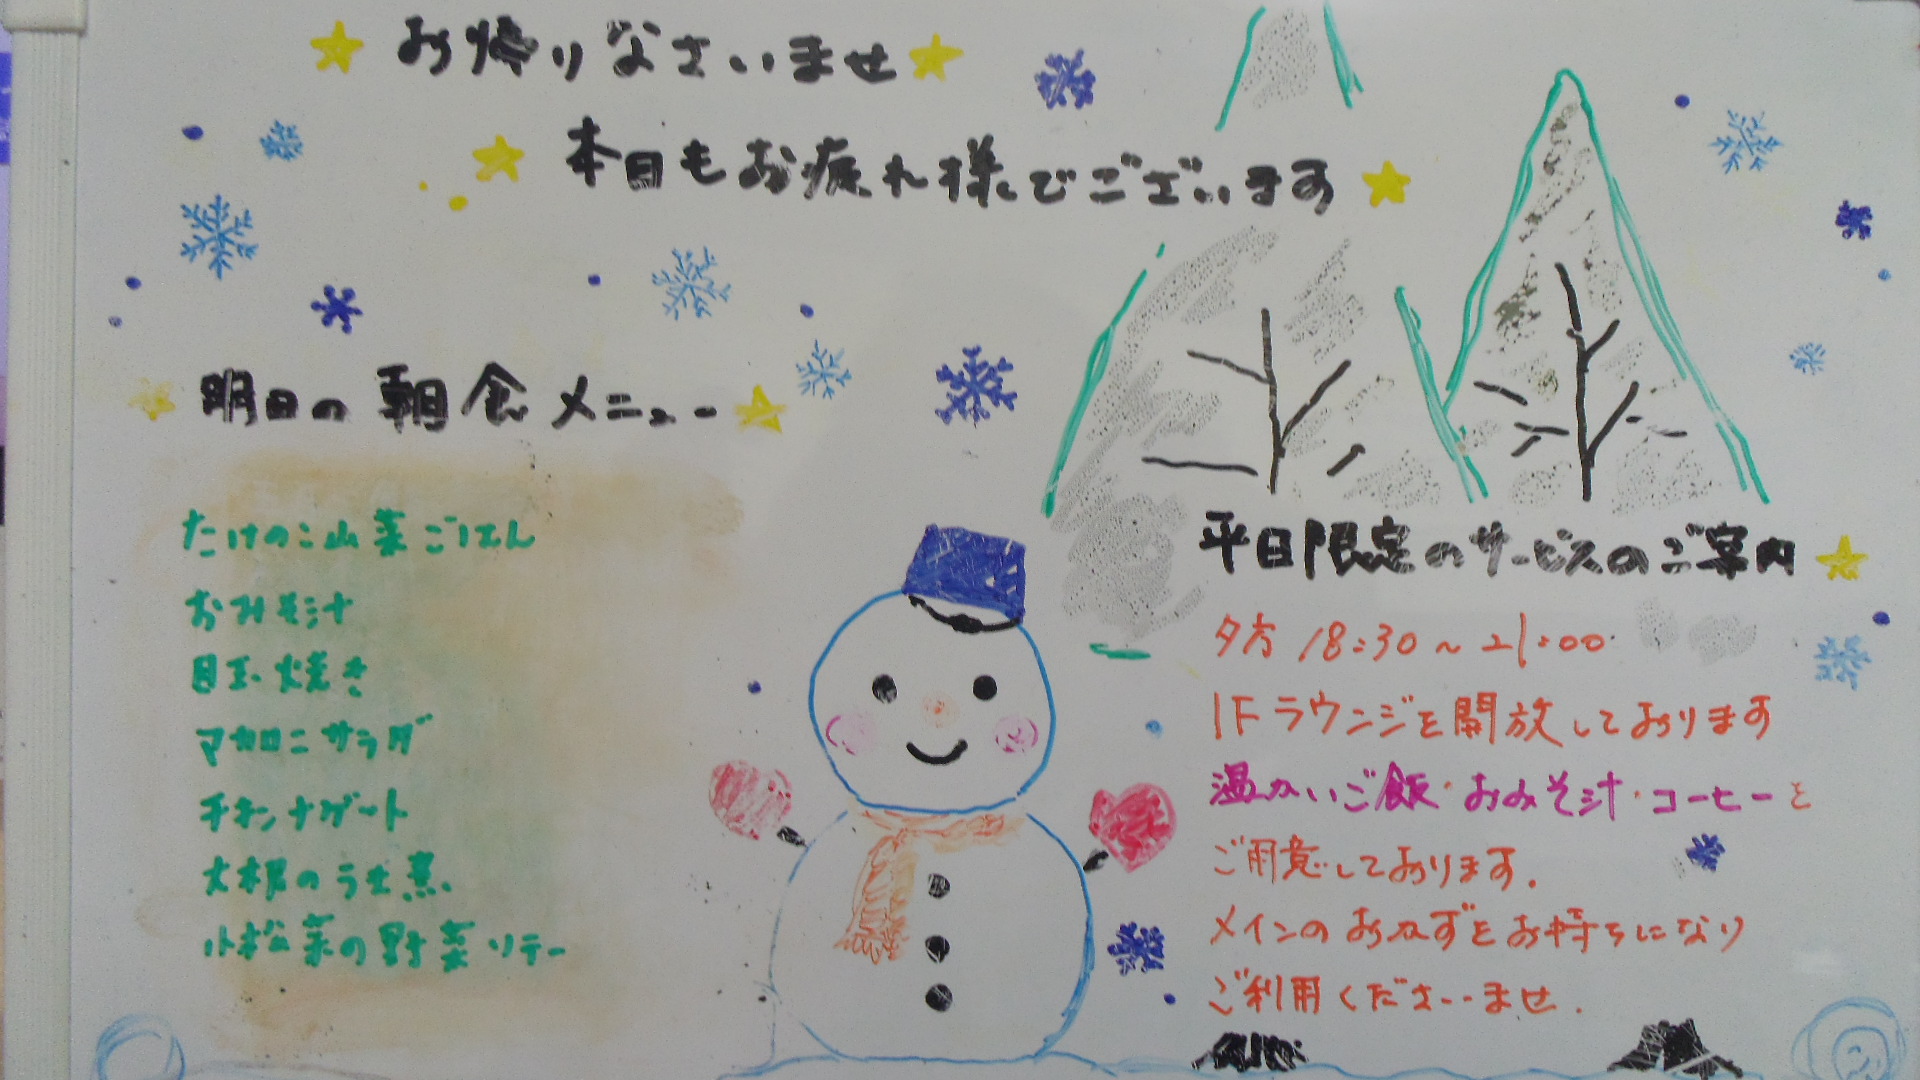 お帰りなさいませ
本日もお疲れ様でございます
明日の朝食メニュー
たけのこ山菜ごはん
おみそ汁
目玉焼き
マカロニサラダ
チキンナゲット
大根のうま煮
小松菜の野菜ソテー
平日限定のサービスのご案内
夕方 18:30~21:00
1Fラウンジを開放しております
温かいご飯・おみそ汁・コーヒーを
ご用意しております.
メインのおかずをお持ちになり
ご利用くださいませ.